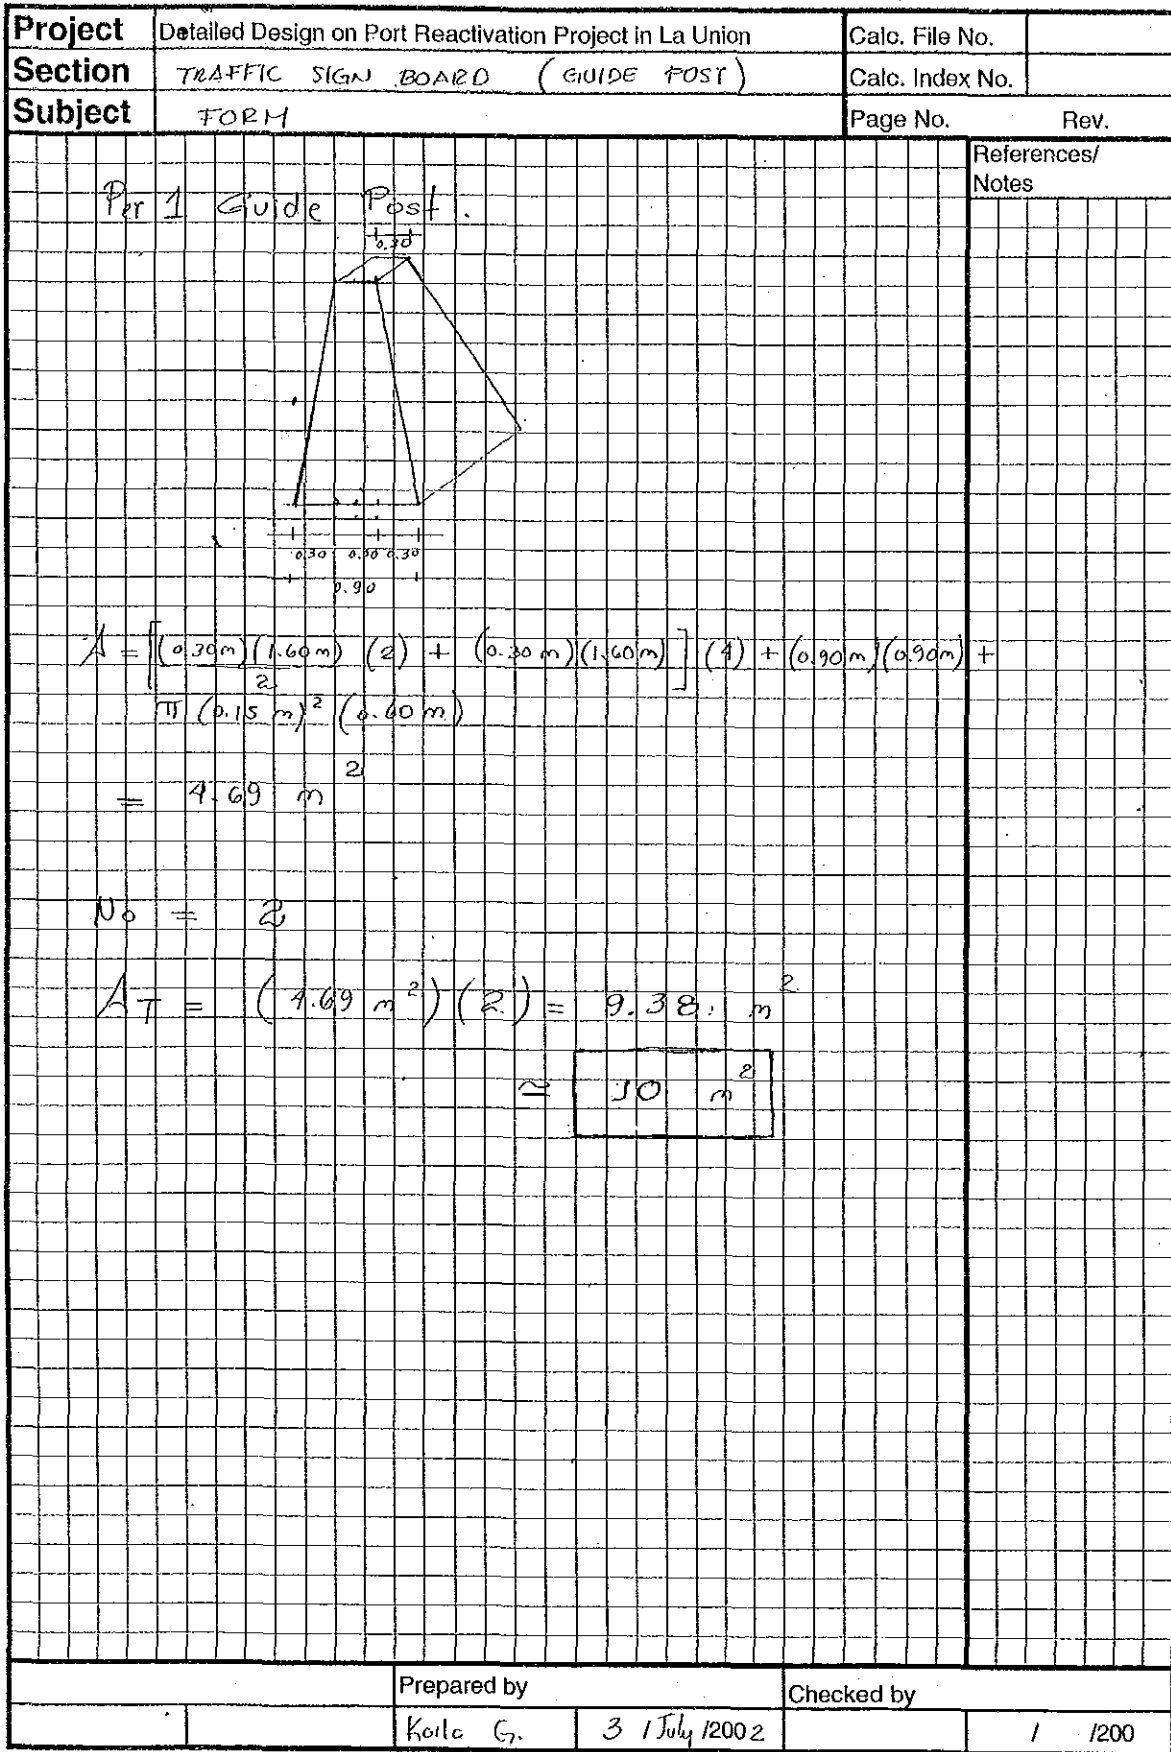 Project Detailed Design on Port Reactivation Project in La Union Calc. File No.
Section TRAFFIC SIGN BOARD (GUIDE POST) Calc. Index No.
Subject FORM Page No. Rev.
References/
Notes
Per 1 Guide Post.
0.30
0.30 0.30 0.30
0.90
A = [(0.30m)(1.60m)/2 (2) + (0.30m)(1.60m)] (4) + (0.90m)(0.90m) +
π (0.15 m)² (0.60m)
= 4.69 m²
No = 2
A_T = (4.69 m²)(2) = 9.38 m²
≃ 10 m²
Prepared by Checked by
Karla G. 3 / July /2002 / /200